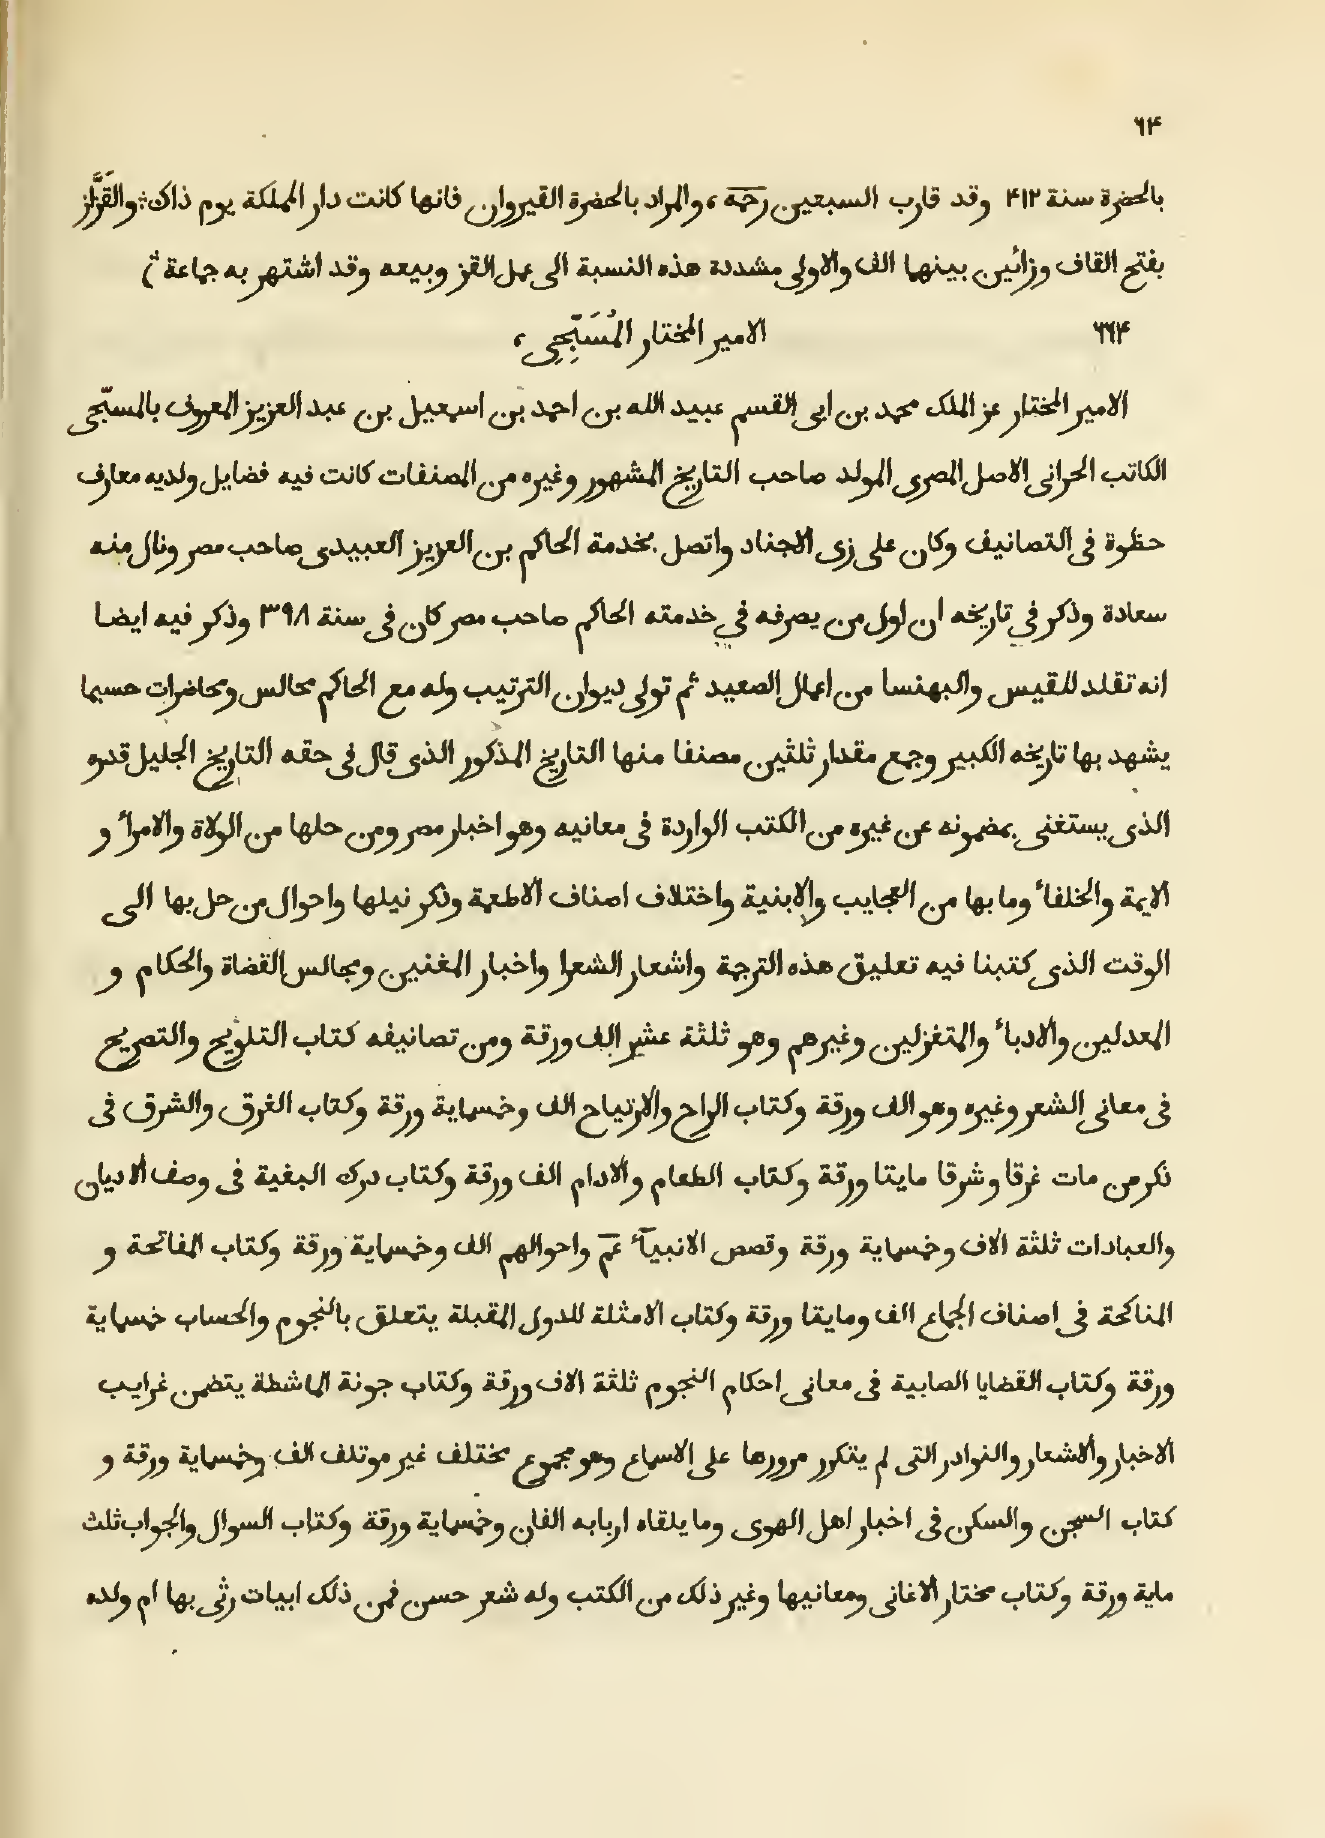 ٦۴
بالحضرة سنة ۴١٢ وقد قارب السبعين رحمه، والمراد بالحضرة القيروان فانها كانت دار المملكة يوم ذاك؛ والقَزَّاز
بفتح القاف وزائين بينها الف والاولى مشددة هذه النسبة الى عمل القز وبيعه وقد اشتهر به جماعة )
٦٦۴ الامير المختار المُسَبِّحِى،
الامير المختار عز الملك محمد بن ابى القسم عبيد الله بن احمد بن اسمعيل بن عبد العزيز المعروف بالمسبّحى
الكاتب الحرانى الاصل المصرى المولد صاحب التاريخ المشهور وغيره من المصنفات كانت فيه فضايل ولديه معارف
حظوة فى التصانيف وكان على زى الاجناد واتصل بخدمة الحاكم بن العزيز العبيدى صاحب مصر ونال منه
سعادة وذكر في تاريخه ان اول من يصرفه في خدمته الحاكم صاحب مصر كان فى سنة ٣٩٨ وذكر فيه ايضا
انه تقلد للقيس والبهنسا من اعمال الصعيد ثم تولى ديوان الترتيب وله مع الحاكم مجالس ومحاضرات حسبما
يشهد بها تاريخه الكبير وجمع مقدار ثلثين مصنفا منها التاريخ المذكور الذى قال فى حقه التاريخ الجليل قدره
الذى يستغنى بمضمونه عن غيره من الكتب الواردة فى معانيه وهو اخبار مصر ومن حلها من الولاة والامراء و
الايمة والخلفاء وما بها من العجايب والابنية واختلاف اصناف الاطعمة وذكر نيلها واحوال من حل بها الى
الوقت الذى كتبنا فيه تعليق هذه الترجمة واشعار الشعرا واخبار المغنين ومجالس القضاة والحكام و
المعدلين والادباء والمتغزلين وغيرهم وهو ثلثة عشر الف ورقة ومن تصانيفه كتاب التلويح والتصريح
فى معانى الشعر وغيره وهو الف ورقة وكتاب الراح والارتياح الف وخمسماية ورقة وكتاب الغرق والشرق فى
ذكر من مات غرقا وشرقا مايتا ورقة وكتاب الطعام والادام الف ورقة وكتاب درك البغية فى وصف الاديان
والعبادات ثلثة الاف وخمسماية ورقة وقصص الانبيآء عمّ واحوالهم الف وخمسماية ورقة وكتاب المفاتحة و
المناكحة فى اصناف الجماع الف ومايتا ورقة وكتاب الامثلة للدول المقبلة يتعلق بالنجوم والحساب خمسماية
ورقة وكتاب القضايا الصابية فى معانى احكام النجوم ثلثة الاف ورقة وكتاب جونة الماشطة يتضمن غرايب
الاخبار والاشعار والنوادر التى لم يتكرر مرورها على الاسماع وهو مجموع مختلف غير موتلف الف وخمسماية ورقة و
كتاب السجن والسكن فى اخبار اهل الهوى وما يلقاه اربابه الفان وخمسماية ورقة وكتاب السوال والجواب ثلث
ماية ورقة وكتاب مختار الاغانى ومعانيها وغير ذلك من الكتب وله شعر حسن فمن ذلك ابيات رثى بها ام ولده